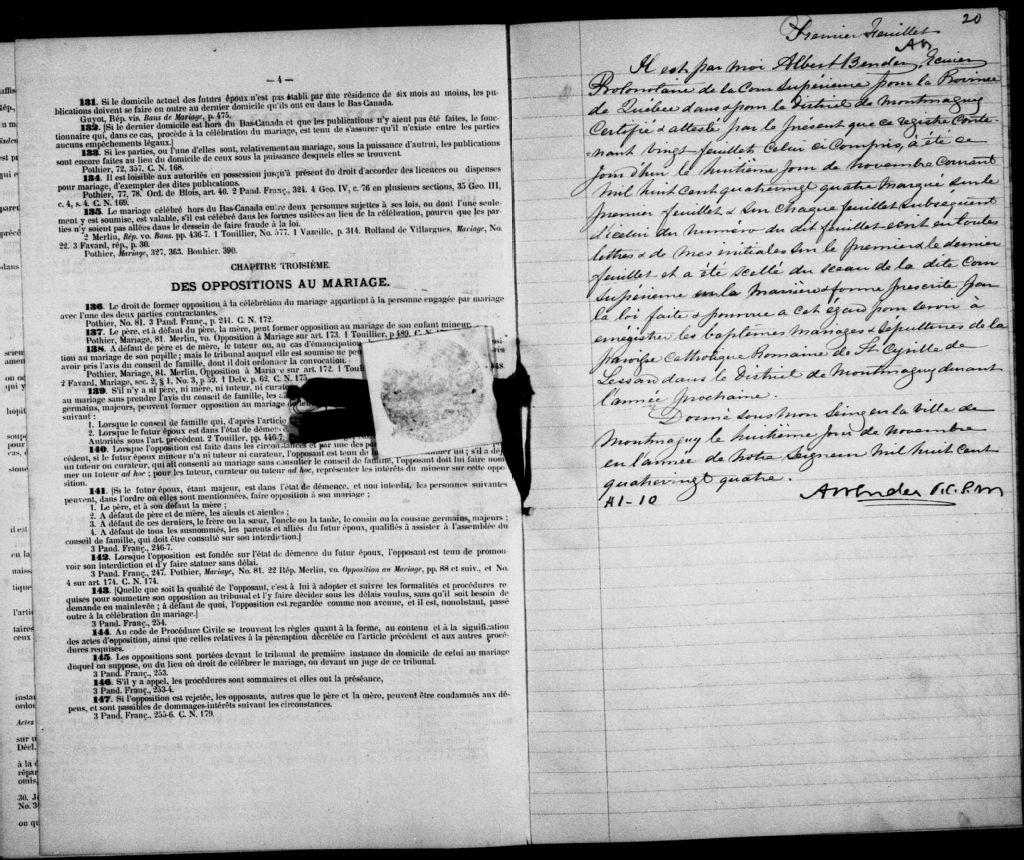 — 4 —
131. Si le domicile actuel des futurs époux n'est pas établi par une résidence de six mois au moins, les pu-
blications doivent se faire en outre au dernier domicile qu'ils ont eu dans le Bas-Canada.
Guyot, Rép. vis. Bans de Mariage, p. 475.
132. [Si le dernier domicile est hors du Bas-Canada et que les publications n'y aient pas été faites, le fonc-
tionnaire qui, dans ce cas, procède à la célébration du mariage, est tenu de s'assurer qu'il n'existe entre les parties
aucuns empêchements légaux.]
133. Si les parties, ou l'une d'elles sont, relativement au mariage, sous la puissance d'autrui, les publications
sont encore faites au lieu du domicile de ceux sous la puissance desquels elles se trouvent.
Pothier, 72, 357. C. N. 168.
134. Il est loisible aux autorités en possession jusqu'à présent du droit d'accorder des licences ou dispenses
pour mariage, d'exempter des dites publications.
Pothier, 77, 78. Ord. de Blois, art. 40. 2 Pand. Franç., 324. 4 Geo. IV, c. 76 en plusieurs sections, 35 Geo. III,
c. 4, s. 4. C. N. 169.
135. Le mariage célébré hors du Bas-Canada entre deux personnes sujettes à ses lois, ou dont l'une seule-
ment y est soumise, est valable, s'il est célébré dans les formes usitées au lieu de la célébration, pourvu que les par-
ties n'y soient pas allées dans le dessein de faire fraude à la loi.
2 Merlin, Rép. vo. Bans, pp. 436-7. 1 Touillier, No. 577. 1 Vazeille, p. 314. Rolland de Villargues, Mariage, No.
22. 3 Favard, rép., p. 30.
Pothier, Mariage, 327, 363. Bouhier. 390.
CHAPITRE TROISIÈME.
DES OPPOSITIONS AU MARIAGE.
136. Le droit de former opposition à la célébration du mariage appartient à la personne engagée par mariage
avec l'une des deux parties contractantes.
Pothier, No. 81. 3 Pand. Franç., p. 241. C. N. 172.
137. Le père, et à défaut du père, la mère, peut former opposition au mariage de son enfant mineur.
Pothier, Mariage, 81. Merlin, vo. Opposition à Mariage sur art. 173. 1 Touillier, p 489. C. N.
138. A défaut de père et de mère, le tuteur ou, au cas d'émancipation
tion au mariage de son pupille; mais le tribunal auquel elle est soumise ne
avoir pris l'avis du conseil de famille, dont il doit ordonner la convocation.
Pothier, Mariage, 81. Merlin, Opposition à Maria e sur art. 172. 1 Toui
2 Favard, Mariage, sec. 2, § 1, No. 3, p 59. 1 Delv. p. 62, C. N. 175.
139. S'il n'y a ni père, ni mère, ni tuteur, ni curate
au mariage sans prendre l'avis du conseil de famille, les
germains, majeurs, peuvent former opposition au mariage
suivant :
1. Lorsque le conseil de famille qui, d'après l'article
2. Lorsque le futur époux est dans l'état de démence
Autorités sous l'art. précédent. 2 Touiller, pp. 446-7.
140. Lorsque l'opposition est faite dans les circonstances et par une des
cédent, si le futur époux mineur n'a ni tuteur ni curateur, l'opposant est tenu de
un tuteur ou curateur, qui ait consenti au mariage sans consulter le conseil de famille, l'opposant doit lui faire nom-
mer un tuteur ad hoc ; pour les tuteur, curateur ou tuteur ad hoc, représenter les intérêts du mineur sur cette oppo-
sition.
141. [Si le futur époux, étant majeur, est dans l'état de démence, et non interdit, les personnes suivantes
peuvent, dans l'ordre où elles sont mentionnées, faire opposition à son mariage ;
1. Le père, et à son défaut la mère ;
2. A défaut de père et de mère, les aïeuls et aïeules ;
3. A défaut de ces derniers, le frère ou la sœur, l'oncle ou la tante, le cousin ou la cousine germains, majeurs ;
4. A défaut de tous les susnommés, les parents et alliés du futur époux, qualifiés à assister à l'assemblée du
conseil de famille, qui doit être consulté sur son interdiction.]
3 Pand. Franç., 246-7.
142. Lorsque l'opposition est fondée sur l'état de démence du futur époux, l'opposant est tenu de promou-
voir son interdiction et d'y faire statuer sans délai.
3 Pand. Franç., 247. Pothier, Mariage, No. 81. 22 Rép. Merlin, vo. Opposition au Mariage, pp. 88 et suiv., et No.
4 sur art. 174. C. N. 174.
143. [Quelle que soit la qualité de l'opposant, c'est à lui à adopter et suivre les formalités et procédures re
quises pour soumettre son opposition au tribunal et l'y faire décider sous les délais voulus, sans qu'il soit besoin de
demande en mainlevée ; à défaut de quoi, l'opposition est regardée comme non avenue, et il est, nonobstant, passé
outre à la célébration du mariage.]
3 Pand. Franç., 254.
144. Au code de Procédure Civile se trouvent les règles quant à la forme, au contenu et à la signification
des actes d'opposition, ainsi que celles relatives à la péremption décrétée en l'article précédent et aux autres procé-
dures requises.
145. Les oppositions sont portées devant le tribunal de première instance du domicile de celui au mariage
duquel on s'oppose, ou du lieu où droit de célébrer le mariage, ou devant un juge de ce tribunal.
3 Pand. Franç., 253.
146. S'il y a appel, les procédures sont sommaires et elles ont la préséance,
3 Pand. Franç., 253-4.
147. Si l'opposition est rejetée, les opposants, autres que le père et la mère, peuvent être condamnés aux dé-
pens, et sont passibles de dommages-intérêts suivant les circonstances.
3 Pand. Franç., 255-6. C. N. 179.
20
Premier Feuillet
AB
Il est par moi Albert Bender, Ecuier
Protonotaire de la Cour Supérieure pour la Province
de Québec dans & pour le District de Montmagny
Certifié & attesté par le présent que ce registre Conte-
-nant vingt feuillets Celui ci Compris, à été ce
jour d'hui le huitième jour de novembre courant
Mil huit cent quatrevingt quatre Marqué sur le
premier feuillet & sur chaque feuillet subsequent
d'icelui du numéro du dit feuillet écrit en toutes
lettres & de Mes initiales sur le premier & le dernier
feuillet et a été scellé du sceau de la dite Cour
Supérieure en la Manière & forme prescrite par
la loi faite & pourvue à cet égard pour servir à
enregistrer les baptêmes Mariages & Sepultures de la
paroisse Catholique Romaine de St Cyrille de
Lessard dans le District de Montmagny durant
l'année prochaine.
Donné sous mon Seing en la Ville de
Montmagny le huitième jour de novembre
en l'année de notre Seigneur Mil huit Cent
quatrevingt quatre.
A1-10
ABender P.C.S.M